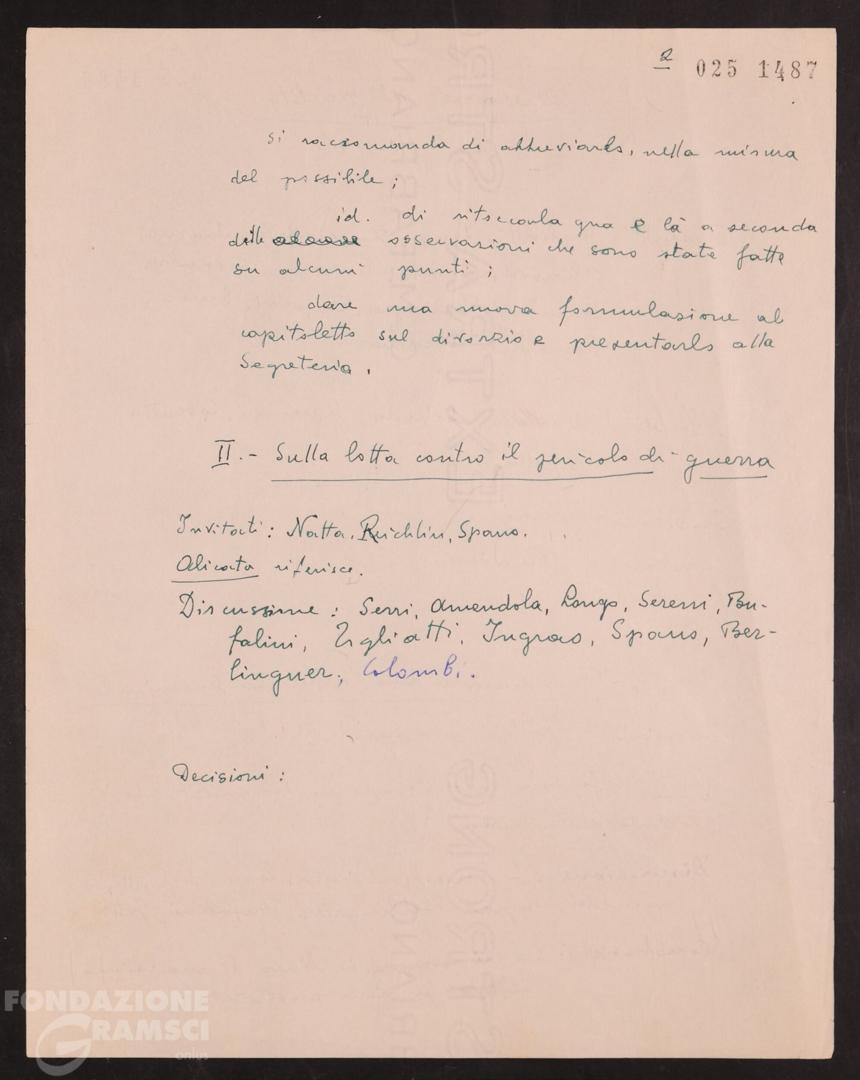 2
025 1487
si raccomanda di abbreviarlo, nella misura
del possibile;
id. di ritoccarla qua e là a seconda
delle osservazioni che sono state fatte
su alcuni punti;
dare una nuova formulazione al
capitoletto sul divorzio e presentarlo alla
Segreteria.
II.- Sulla lotta contro il pericolo di guerra
Invitati: Natta, Reichlin, Spano.
Alicata riferisce.
Discussione: Serri, Amendola, Longo, Sereni, Bu-
falini, Togliatti, Ingrao, Spano, Ber-
linguer, Colombi.
Decisioni:
FONDAZIONE
GRAMSCI
onlus